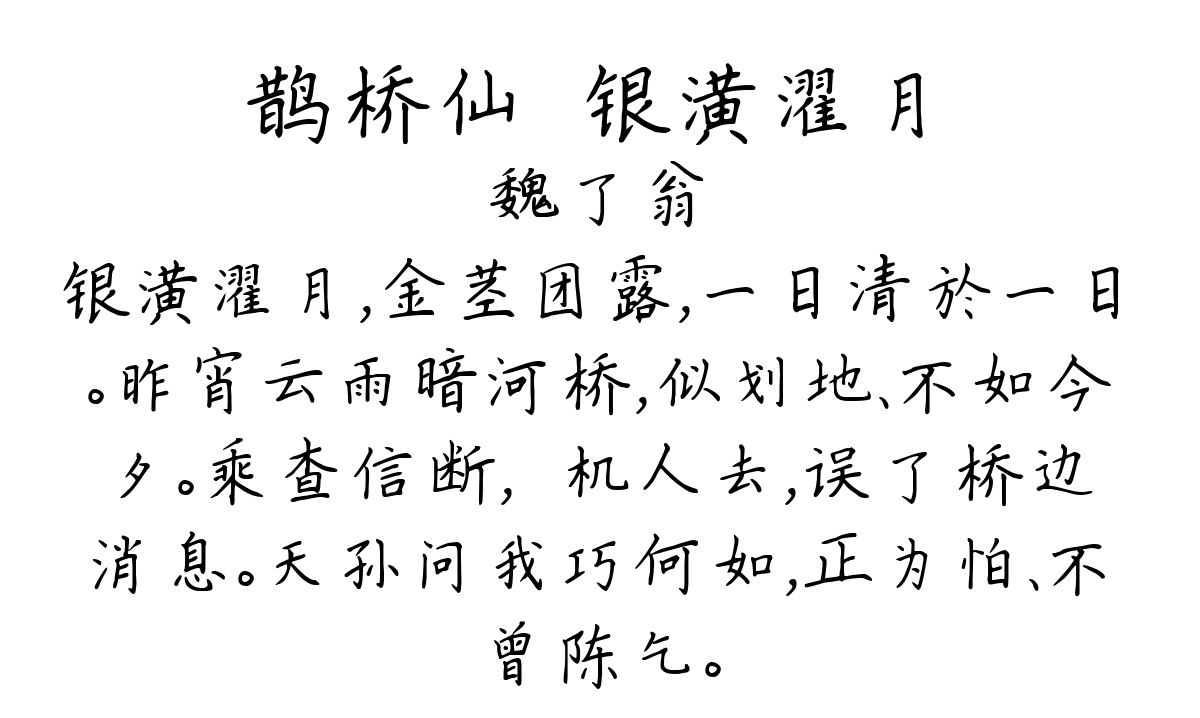 鹊桥仙 银潢濯月
魏了翁
银潢濯月,金茎团露,一日清於一日
。昨宵云雨暗河桥,似划地、不如今
夕。乘查信断, 机人去,误了桥边
消息。天孙问我巧何如,正为怕、不
曾陈乞。